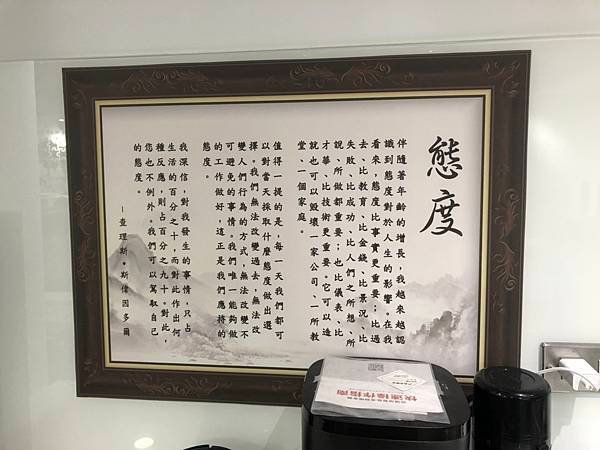 態度
伴隨著年齡的增長，我越來越認
識到態度對於人生的影響。在我
看來，態度比事實更重要；比過
去、比教育、比金錢、比景況、比
失敗、比成功、比人們之所想、所
說、所做都重要；也比儀表、比
才華、比技術更重要。它可以造
就也可以毀壞一家公司、一所教
堂、一個家庭。
值得一提的是，每一天我們都可
以對當天採取什麼態度做出選
擇。我們無法改變過去，無法改
變人們行為的方式，無法改變不
可避免的事情。我們唯一能夠做
的工作做好，這正是我們應持的
態度。
我深信，對我發生的事情，只占
生活的百分之十，而對此作出何
種反應，則占百分之九十。對此，
您也不例外。我們可以駕取自己
的態度。
—查理斯•斯偉因多爾
快速操作指南